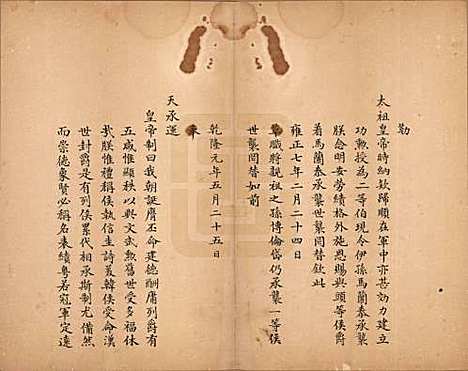 勅
太祖皇帝時納欵歸順在軍中亦甚効力建立
功勲授為二等伯現今伊孫馬蘭泰承襲
朕念明安勞績格外施恩賜與頭等侯爵
着馬蘭泰承世襲罔替欽此
雍正七年二月二十四日
革職將親祖之孫博倫岱仍承襲一等侯
世襲罔替如前
乾隆元年五月二十五日
奉
天承運
皇帝制曰我朝誕膺丕命建德酬庸列爵有
五咸惟顯秩以與文武勲舊世受多福休
哉朕惟禮稱侯執信圭詩美韓侯受命漢
世封爵是有列侯累代相承斯制尤備然
而崇德象賢必稱名奏績粤若冠軍定遠